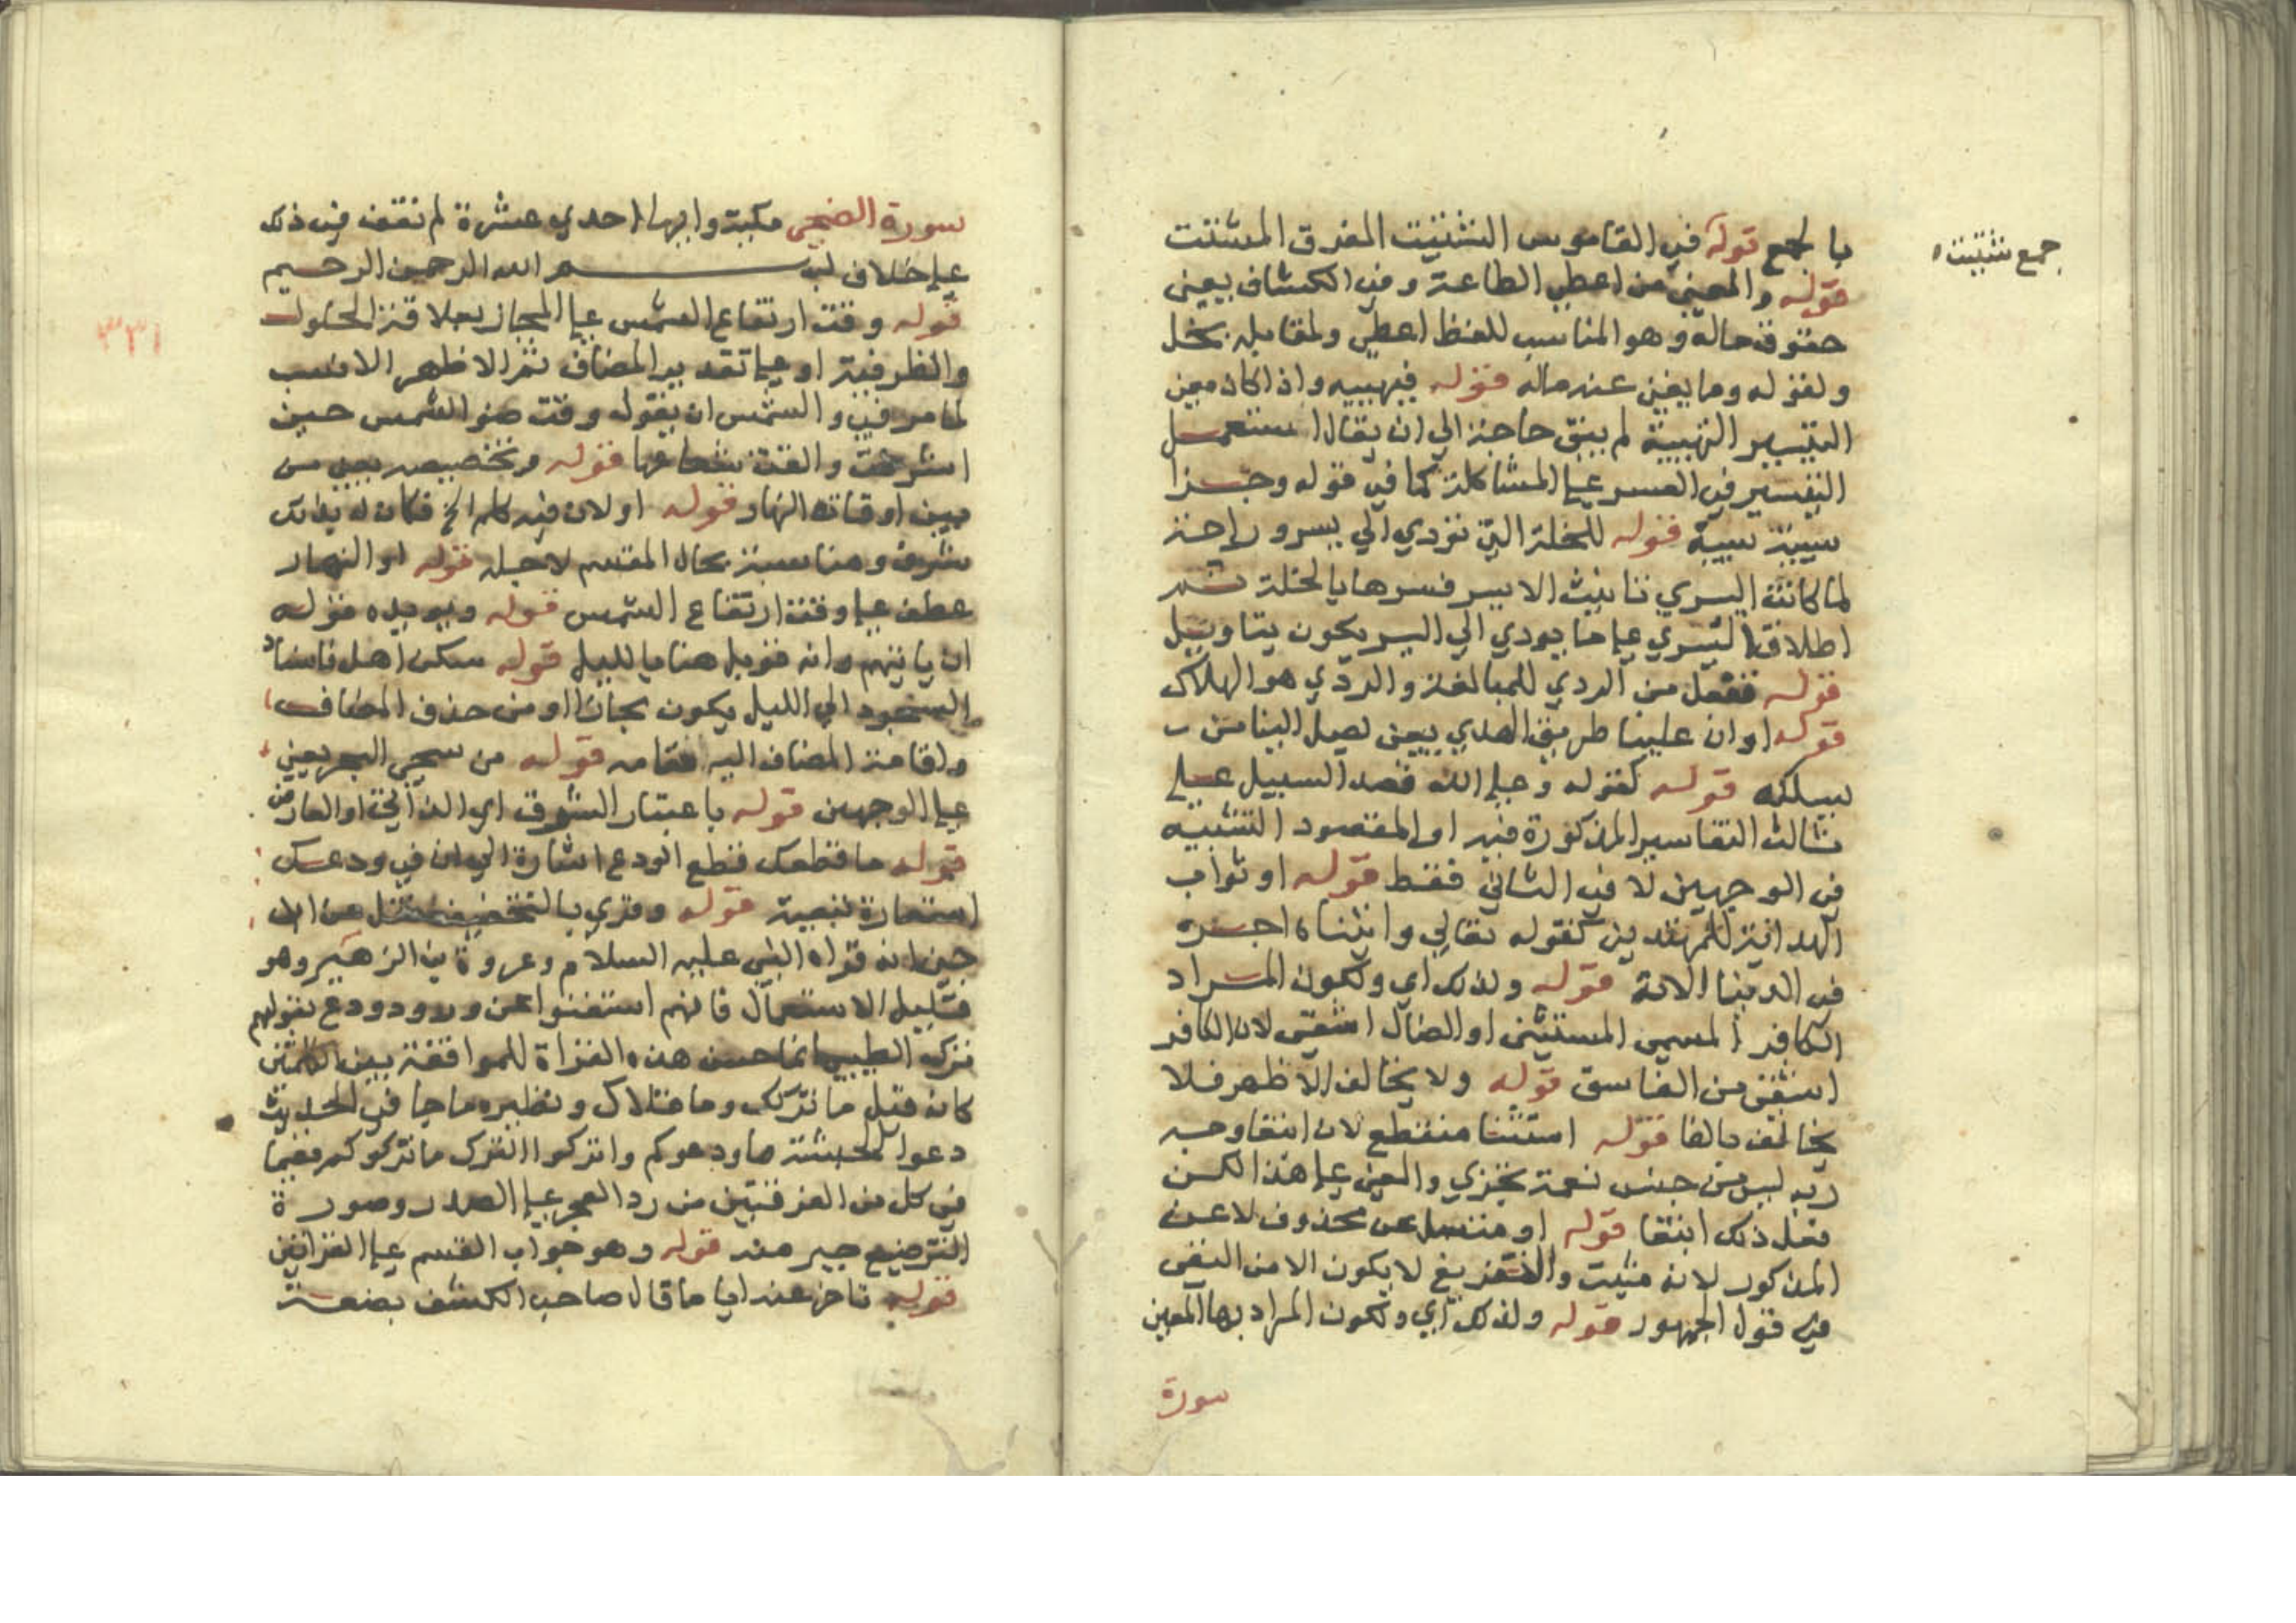 جمع شتيت
بالجمع قوله في القاموس الشتيت المفرق المشتت
قوله والمعنى من اعطى الطاعة وفي الكشاف يعنى
حقوق ماله وهو المناسب للفظ اعطى ولمقابله بخل
ولقوله وما يغنى عنه ماله قوله فيهييه واذا كان معنى
التيسير التهيية لم يبق حاجة الي ان يقال استعمل
التيسير في العسر على المشاكلة كما في قوله وجزا
سيية سيية قوله للخلة التي تودي الي يسر وراحة
لما كانت اليسري تانيث الايسر فسرها بالخلة ثم
اطلاق اليسري على ما يودي الي اليسر يكون بتاويل
قوله تفعل من الردي للمبالغة والردي هو الهلاك
قوله او ان علينا طريق الهدي يعنى يصل الينا من
يسلكه قوله كقوله وعلى الله قصد السبيل على
ثالث التفاسير المذكورة فيه او المقصود التشبيه
في الوجهين لا في الثاني فقط قوله او ثواب
الهداية للمهتدين كقوله تعالي واتيناه اجره
في الدنيا الاية قوله ولذلك اي ولكون المراد
الكافر المسمى المستثنى او الضال اشقى لان الكافر
اشقى من الفاسق قوله ولا يخالف الاظهر فلا
يخالف قوله استثنا منقطع لان ابتغا وجه
ربه ليس من جنس نعمة تجزي والمعنى على هذا لكن
فعل ذلك ابتغا قوله او متصل عن محذوف لا عن
المذكور لانه مثبت والتفريغ لا يكون الا من النفى
في قول الجمهور قوله ولذلك اي ولكون المراد بها المعين
سورة
سورة الضحى مكية وايها احدي عشرة لم نقف في ذلك
على خلاف بسم الله الرحمن الرحيم
قوله وقت ارتفاع الشمس على المجاز بعلاقة الحلول
٣٣١
والظرفية او على تقدير المضاف ثم الاظهر الانسب
لما مر في والشمس ان يقول وقت ضو الشمس حين
اشرقت والقت شعاعها قوله وتخصيصه يعنى من
بين اوقات النهار قوله او لان فيه كلم الخ فكان له بذلك
شرف ومناسبة بحال المقسم لاجله قوله او النهار
عطف على وقت ارتفاع الشمس قوله ويويده قوله
ان ياتيهم وانه قوبل هنا بالليل قوله سكن اهله فاسناد
السجود الي الليل يكون مجازا او من حذف المضاف
واقامة المضاف اليه مقامه قوله من سجى البحر يعنى
على الوجهين قوله باعتبار الشرف اي الذاتي او العارض
قوله ما قطعك قطع المودع اشارة الي ان في ودعك
استعارة تبعية قوله وقري بالتخفيف نقل عن ابن
جنى انه قراه النبي عليه السلام وعروة بن الزبير وهو
قليل الاستعمال فانهم استغنوا عن وذر وودع بقولهم
ترك الطيبي انما حسن هذه القراة للموافقة بين الكلمتين
كانه قيل ما تركك وما قلاك ونظيره ما جا في الحديث
دعوا الحبشة ما ودعوكم واتركوا الترك ما تركوكم ففيما
في كل من القرينتين من رد العجز على الصدر وصورة
الترصيع جبر منه قوله وهو جواب القسم على القراتين
قوله تاخر عنه اياما قال صاحب الكشف بضعة